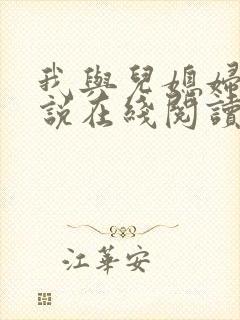 我與兒媳婦
說在綫閱讀
江華安